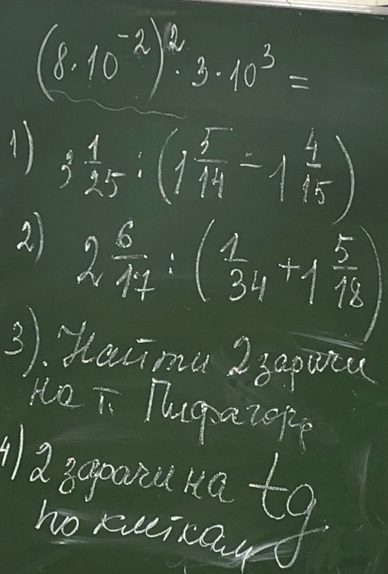 (8·10⁻²)²·3·10³=
1) 3 1/25 : (1 5/14 - 1 4/15)
2) 2 6/17 : (1/34 + 1 5/18)
3). Найти 2 задачи
на т. Пифагора
4) 2 задачи на tg
по клеткам